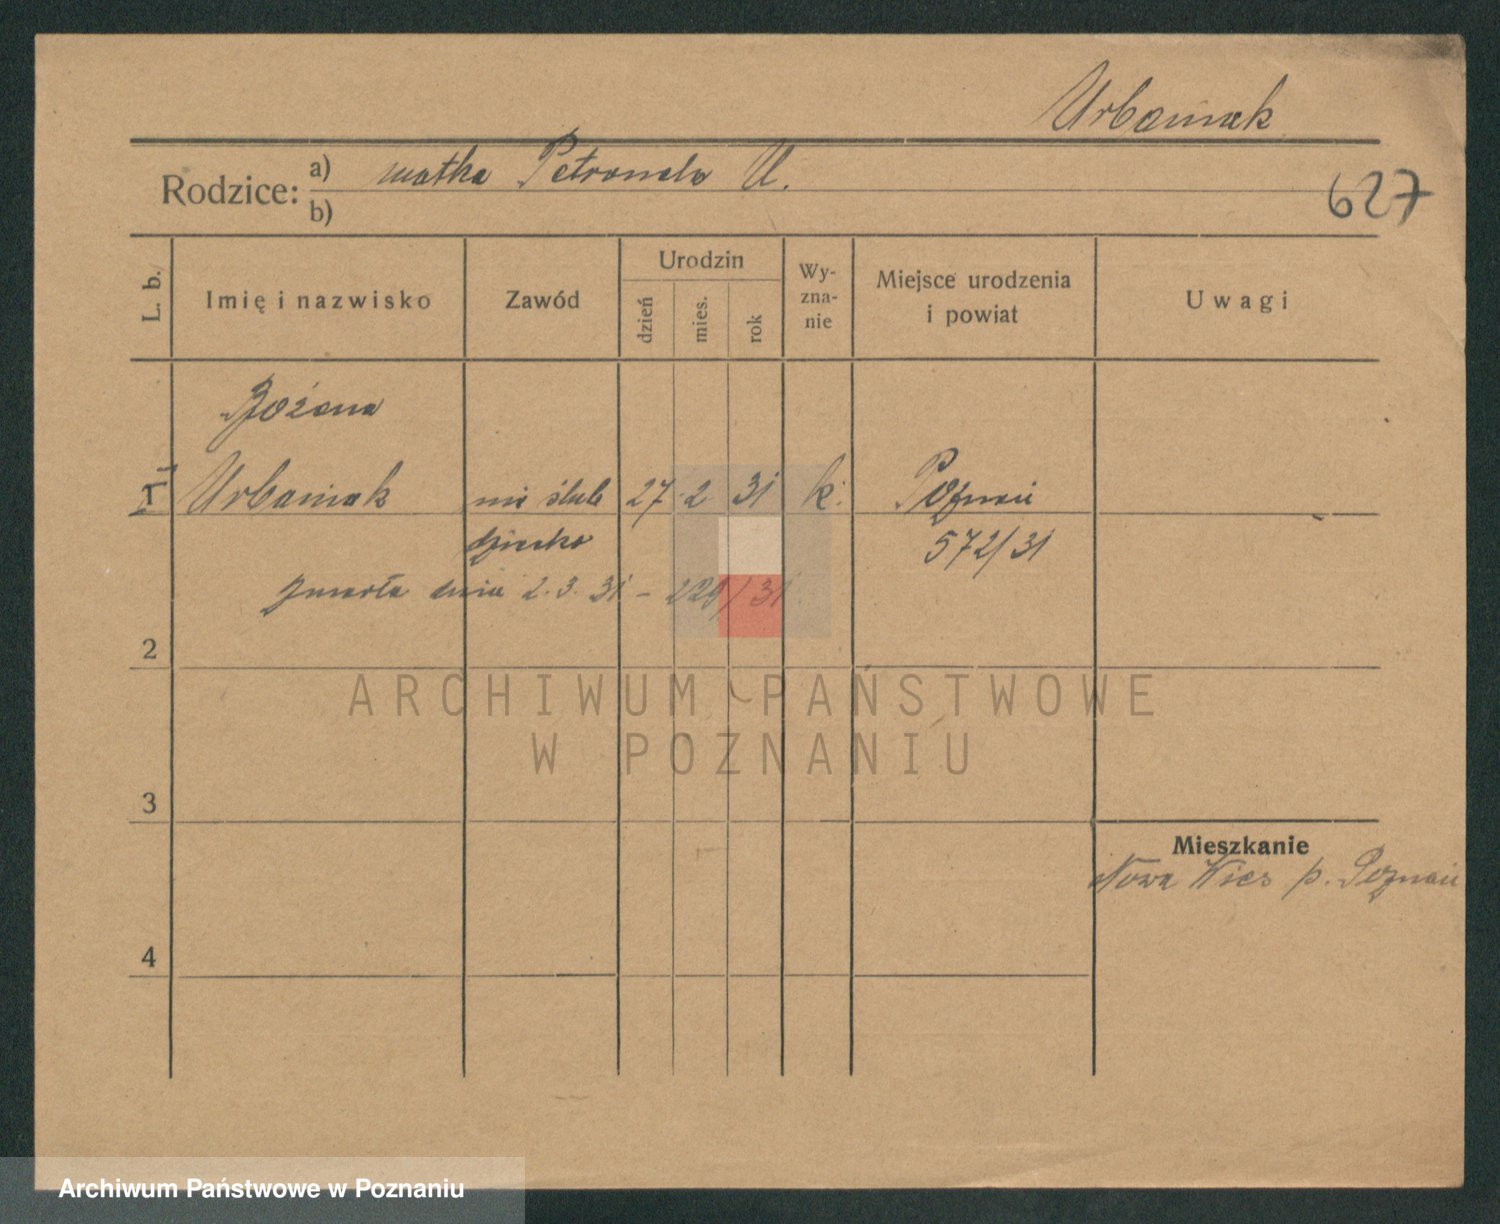 Urbaniak
Rodzice: a) matka Petronela U.
b)
627
L. b. Imię i nazwisko Zawód Urodzin dzień mies. rok Wy-zna-nie Miejsce urodzenia i powiat Uwagi
Bożena
1 Urbaniak nie ślub 27 2 31 k. Poznań
dziecko 572/31
zmarła dnia 2.3.31 - 229/31
2
ARCHIWUM PAŃSTWOWE
W POZNANIU
3
Mieszkanie
Nowa Wieś p. Poznań
4
Archiwum Państwowe w Poznaniu